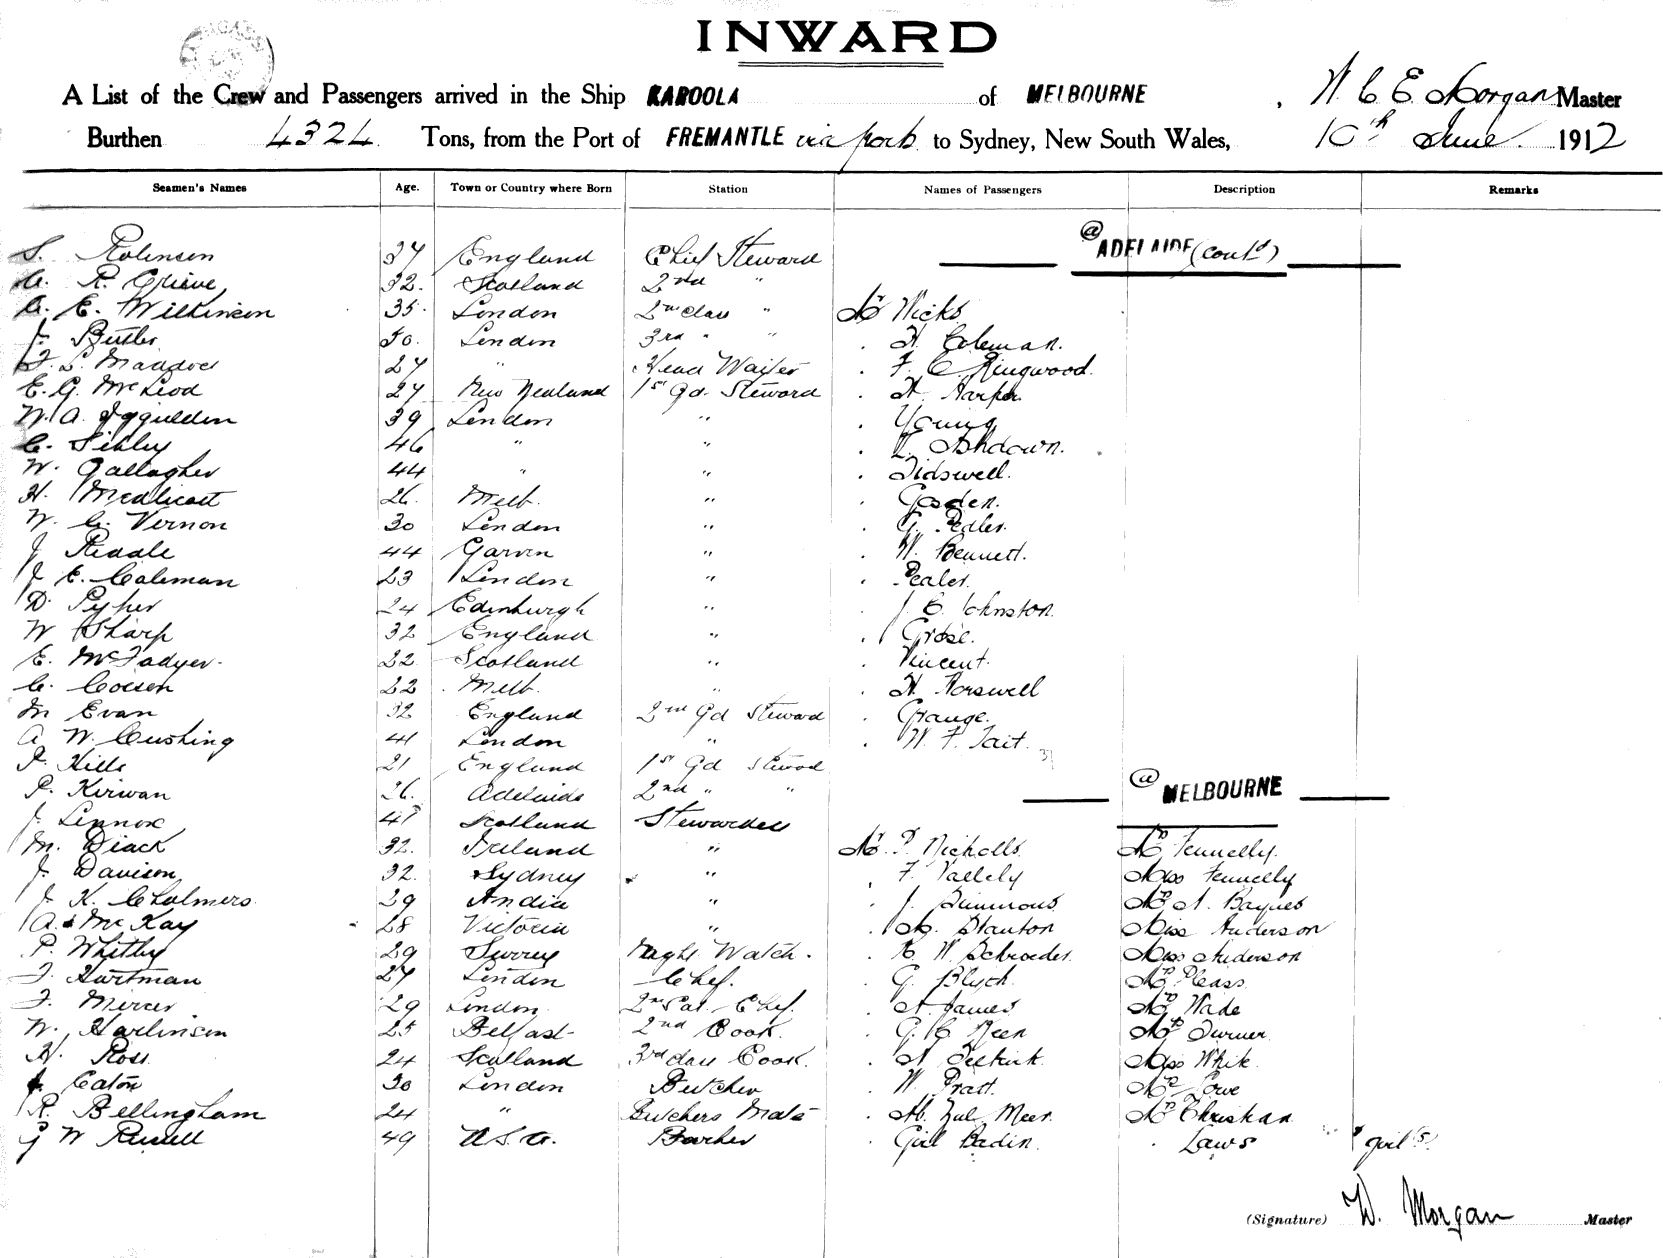 INWARD
A List of the Crew and Passengers arrived in the Ship KAROOLA of MELBOURNE, W C E Morgan Master
Burthen 4324 Tons, from the Port of FREMANTLE via ports to Sydney, New South Wales, 10th June 1912
Seamen's Names Age. Town or Country where Born Station Names of Passengers Description Remarks
@ ADELAIDE (contd)
S. Robinson 37 England Chief Steward
R. Grieve 32. Scotland 2nd "
E. Wilkinson 35. London 2nd Class " Mr Wicks
J. Butler 50. London 3rd " " . H. Coleman.
F. L. Maddox 27 " Head Waiter . F. C. Ringwood.
E. G. McLeod 27 New Zealand 1st Gd. Steward . H. Harper
W. A. Iggulden 39 London " . Young
C. Sibley 46 " " . Ashdown.
W. Gallagher 44 " " . Tidswell.
H. Medlicott 26. Melb. " . Gosden.
W. G. Vernon 30 London " . G. Pedler.
J Riddle 44 " . W. Bennett.
J E. Coleman 23 London " . Pealer.
D. Pypher 24 Edinburgh " . J. E. Johnston.
W Sharp 32 England " . Grose.
E. McFadyen. 22 Scotland " . Vincent.
C. 22 . Melb. " . H. Horswell
M Evan 32 England 2nd Gd Steward . Grange.
A W. Cushing 41 London " . W. F. Tait.
F. Hills 21 England 1st Gd Steward
P. Kirwan 26. Adelaide 2nd " "
@ MELBOURNE
J. Lennox 47 Scotland Stewardess
M. Diack 32. Ireland " Mr. T. Nicholls Mrs Fennelly.
J. Davison 32. Sydney " . F. Vallely Miss Fennelly
J K. Chalmers 39 India " . J. Simmons Mrs A. Baynes
A. McKay 28 Victoria " . M. Stanton Miss Anderson
P. Whitley 29 Surrey Night Watch. . H W. Schroeder. Miss Anderson
F. Hartman 27 London Chef. . G. Blyth Mrs Pleass
F. Mercer 29 London 2nd Sal. Chef. . A. James Mrs Wade
W. Harlinson 25 Belfast 2nd Cook. . G. C Keen Mrs Turner
H. Ross 24 Scotland 3rd class Cook. . A. Miss White
J. Eaton 30 London Butcher . W. Pratt. Mrs Lowe
R. Bellingham 24 " Butchers Mate . M. Zul Meer. Mrs Christian
G W Russell 49 U.S.A. Barber . Girl Badin. . Laws girl (s)
(Signature) W. Morgan Master